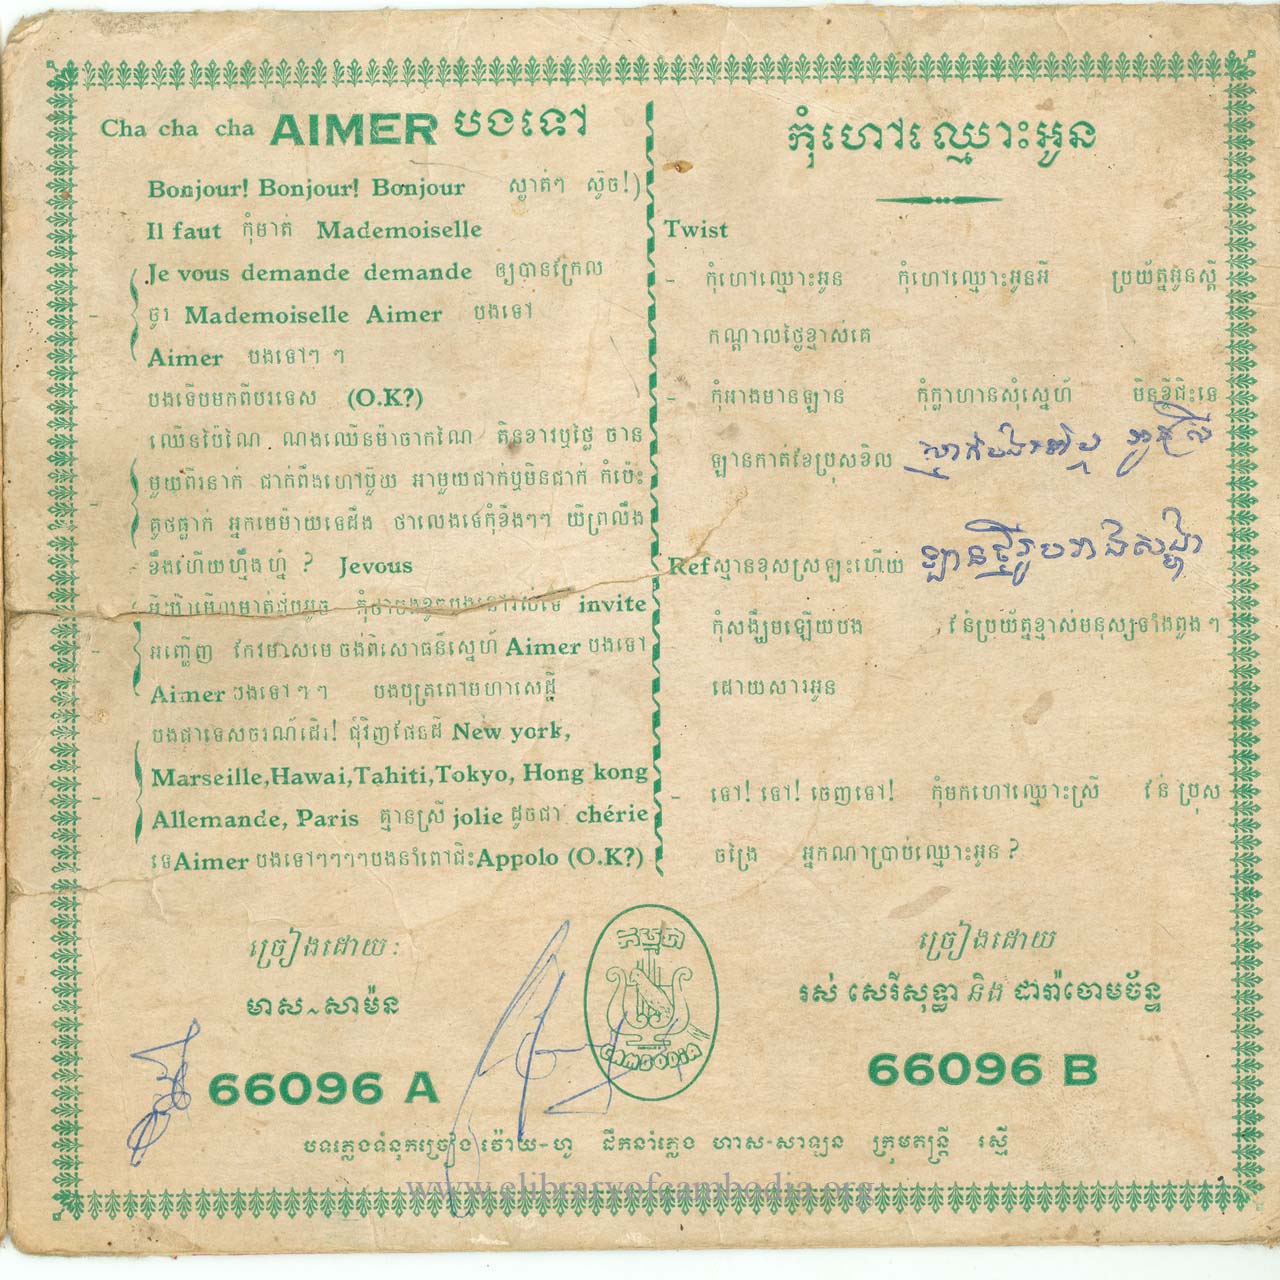 Cha cha cha AIMER បងទៅ
Bonjour! Bonjour! Bonjour ស្ងាត់ៗ ស៊ូច!)
Il faut កុំមាត់ Mademoiselle
Je vous demande demande ឲ្យបានក្រែល
ចូរ Mademoiselle Aimer បងទៅ
Aimer បងទៅៗ ៗ
បងទើបមកពីបរទេស (O.K?)
ឈើនប៉ៃណៃ ណងឈើនម៉ាចាកណៃ តិនខាវឬថ្លៃ ចាន
មួយពីរនាក់ ជាក់ពឹងហៅប៊ួយ អាមួយជាក់ឬមិនជាក់ កំប៉េះ
គូថធ្លាក់ អ្នកមេម៉ាយទេដឹង ថាលេងទេកុំខឹងៗៗ យីព្រលឹង
ខឹងហើយហ្មឹងហ្នំ ? Jevous
invite
អញ្ជើញ កែវមាសមេ ចង់ពិសោធន៍ស្នេហ៍ Aimer បងទៅ
Aimer បងទៅៗៗ បងបុត្រពៅមហាសេដ្ឋី
បងជាទេសចរណ៍ដើរ! ជុំវិញផែនដី New york,
Marseille,Hawai,Tahiti,Tokyo, Hong kong
Allemande, Paris គ្មានស្រី jolie ដូចជា chérie
ទេAimer បងទៅៗៗៗៗបងនាំពៅជិះAppolo (O.K?)
ច្រៀងដោយ:
មាស~សាម៉ន
66096 A
កុំហៅឈ្មោះអូន
Twist
- កុំហៅឈ្មោះអូន កុំហៅឈ្មោះអូនអី ប្រយ័ត្នអូនស្ដី
កណ្ដាលថ្ងៃខ្មាស់គេ
- កុំអាងមានឡាន កុំក្លាហានសុំស្នេហ៍ មិនខ្ចីជិះទេ
ឡានកាត់ខែប្រុសខិល
Ref ស្មានខុសស្រឡះហើយ
កុំសង្ឃឹមឡើយបង ន៎ែប្រយ័ត្នខ្មាស់មនុស្សទាំងពួងៗ
ដោយសារអូន
- ទៅ! ទៅ! ចេញទៅ! កុំមកហៅឈ្មោះស្រី ន៎ែ ប្រុស
ចង្រៃ អ្នកណាប្រាប់ឈ្មោះអូន ?
ច្រៀងដោយ
រស់ សេរីសុទ្ធា និង ដារ៉ាចោមច័ន្ទ
66096 B
កម្ពុជា
CAMBODIA
បទភ្លេងទំនុកច្រៀង វ៉ោយ-ហូ ដឹកនាំភ្លេង ហាស-សាឡន ក្រុមតន្ត្រី រស្មី
www.elibraryofcambodia.org